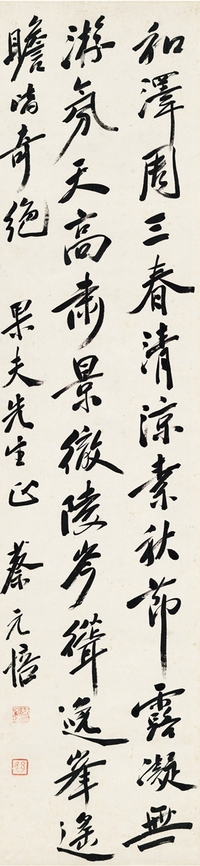 和澤周三春清涼素秋節露凝無
游氛天高肅景徹陵岑聳逸峯遙
瞻皆奇絕
果夫先生正
蔡元培